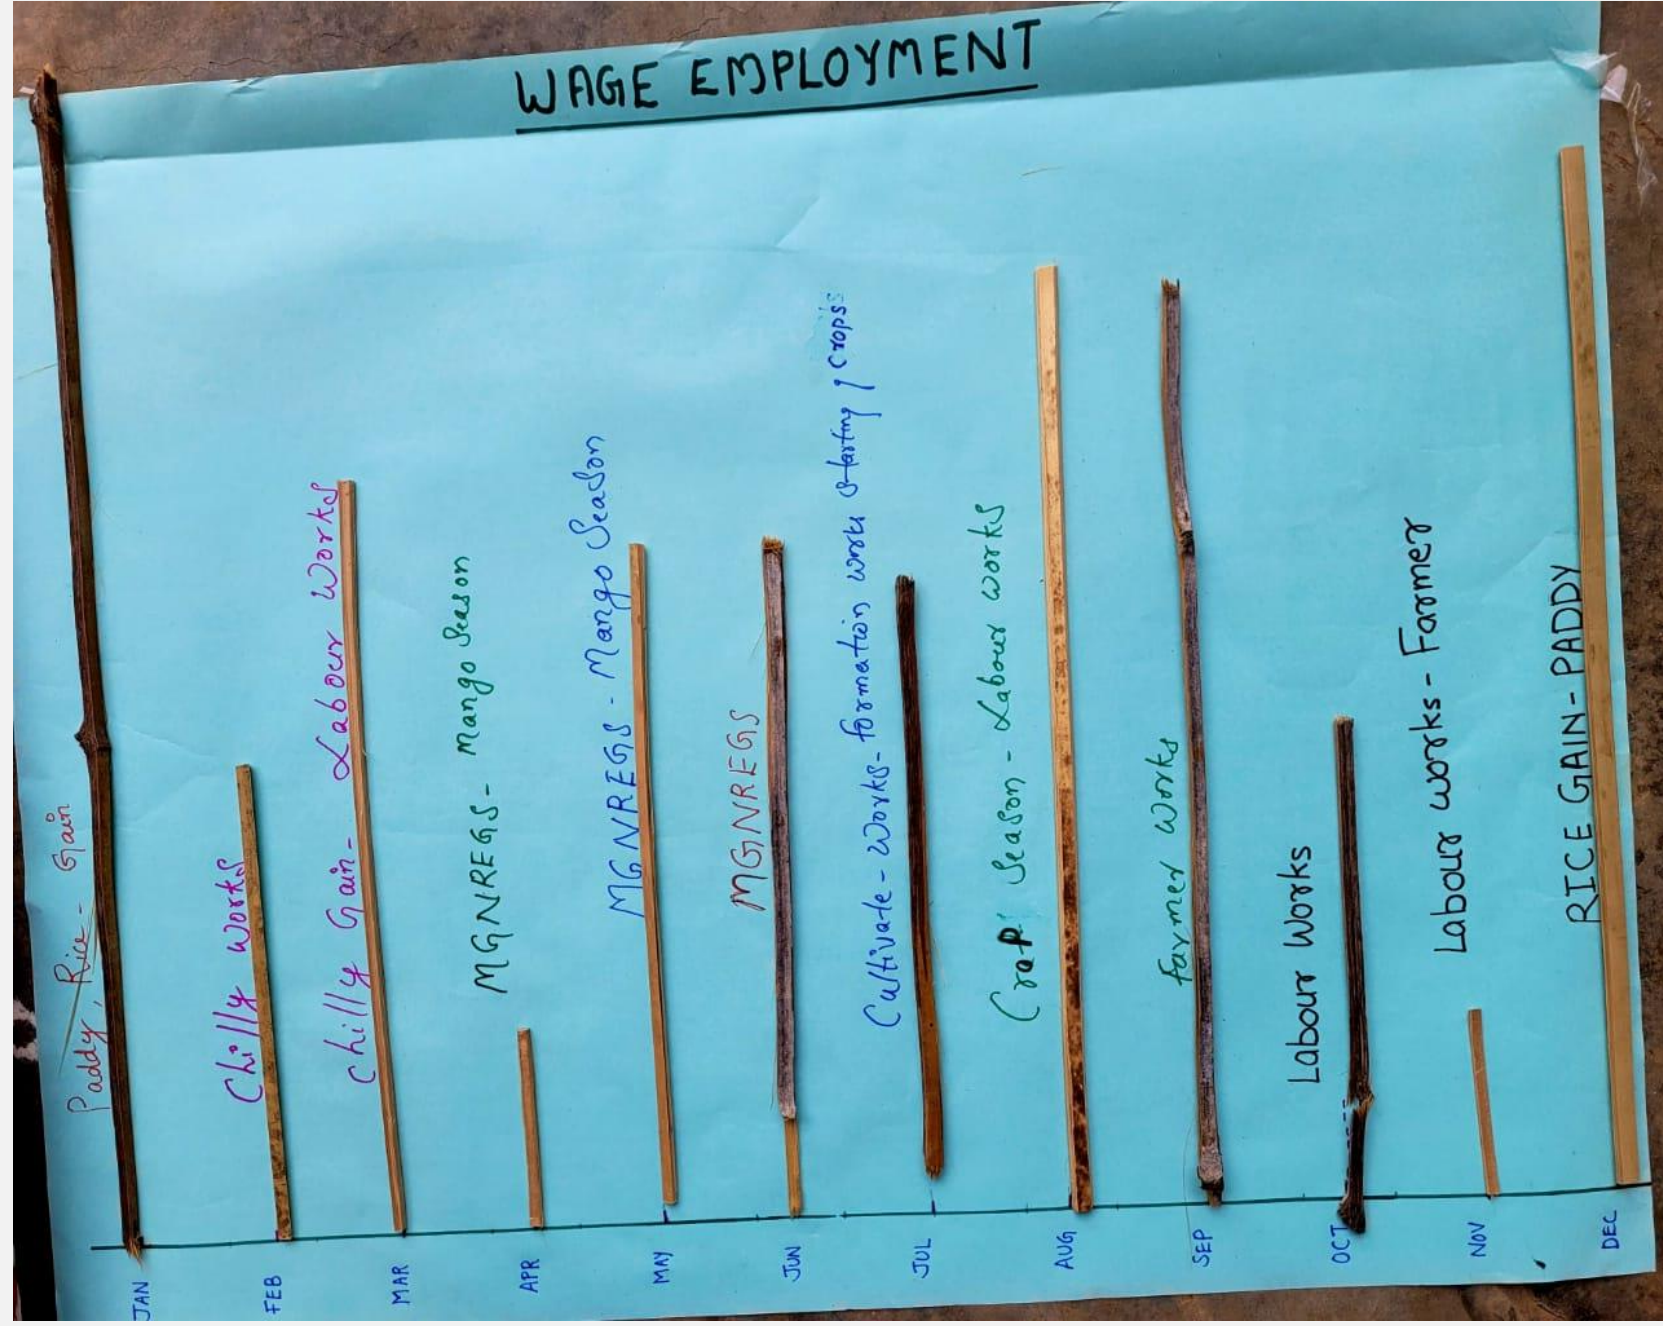 WAGE EMPLOYMENT
Paddy, Rice - Gain
Chilly works
Chilly Gain - Labour Works
MGNREGS - Mango Season
MGNREGS - Mango Season
MGNREGS
Cultivate - Works - formation works starting crops
Crop Season - Labour works
farmer works
Labour Works
Labour works - Farmer
RICE GAIN - PADDY
JAN
FEB
MAR
APR
MAY
JUN
JUL
AUG
SEP
OCT
NOV
DEC